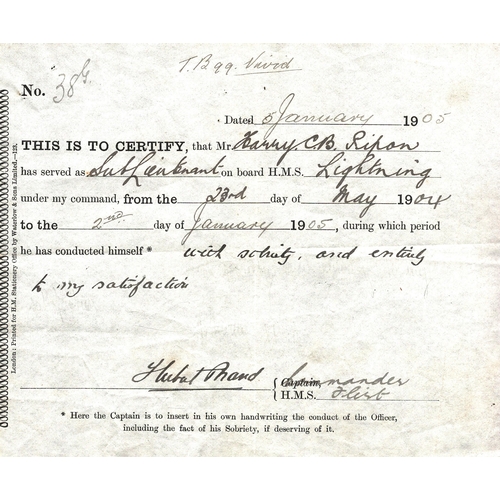 T.B 99. Vivid
No. 38
Dated 5 January 1905
THIS IS TO CERTIFY, that Mr Harry C.B. Ripon
has served as SubLieutenant on board H.M.S. Lightning
under my command, from the 23rd day of May 1904
to the 2nd day of January 1905, during which period
he has conducted himself * with sobriety, and entirely
to my satisfaction
Hubert Brand { Captain, Commander
H.M.S. Flirt
* Here the Captain is to insert in his own handwriting the conduct of the Officer,
including the fact of his Sobriety, if deserving of it.
London: Printed for H.M. Stationery Office by Waterlow & Sons Limited.—123.